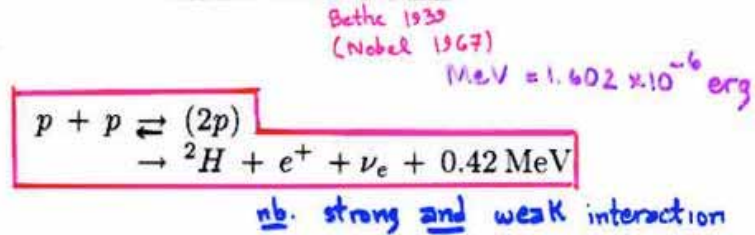 Bethe 1939
(Nobel 1967)
MeV = 1.602 x 10⁻⁶ erg
p + p ⇄ (2p)
→ ²H + e⁺ + νₑ + 0.42 MeV
nb. strong and weak interaction